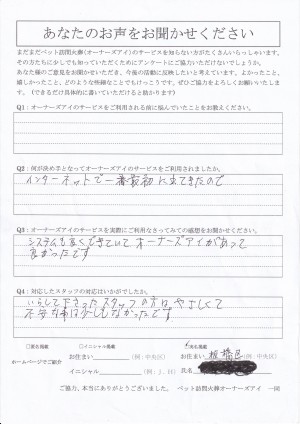 あなたのお声をお聞かせください
まだまだペット訪問火葬(オーナーズアイ)のサービスを知らない方がたくさんいらっしゃいます。
その方たちに少しでも知っていただくためにアンケートにご協力いただけないでしょうか。
あなた様のご意見をお聞かせいただき、今後の活動に反映したいと考えています。よかったこと、
嬉しかったこと、どのような些細なことでもけっこうです。ぜひご協力をよろしくお願いいたします。
(できるだけ具体的に書いていただけると助かります)
Q1:オーナーズアイのサービスをご利用される前に悩んでいたことをお教えください。
Q2:何が決め手となってオーナーズアイのサービスをご利用されましたか。
インターネットで一番最初に出てきたので
Q3:オーナーズアイのサービスを実際にご利用なさってみての感想をお聞かせください。
システムも良くできていて オーナーズアイがあって
良かったです
Q4:対応したスタッフの対応はいかがでしたか。
いらして下さったスタッフの方は やさしくて
不安な事は少しもなかったです
□実名掲載 □イニシャル掲載 匿名掲載
ホームページでご紹介
お住まい (例:中央区) お住まい 板橋区 (例:中央区)
イニシャル (例:J.H) 氏名
ご協力、本当にありがとうございました。 ペット訪問火葬オーナーズアイ 一同